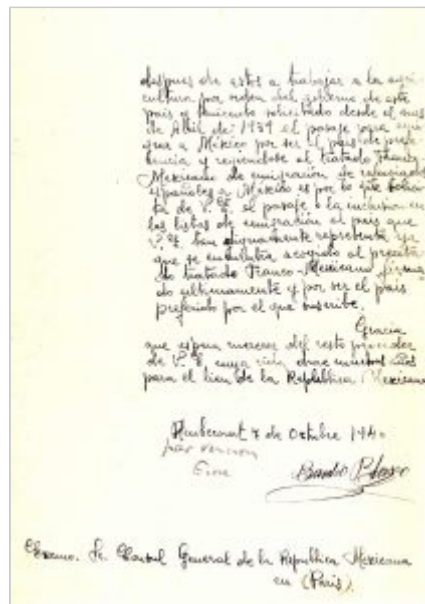 despues de estos a trabajar a la agri-
cultura por orden del gobierno de este
pais y habiendo solicitado desde el mes
de Abril de 1939 el pasaje para emi-
grar a México por ser el pais de prefe-
rencia y el tratado Franco
Mexicano de emigración de refugiados
españoles a México es por lo que solici-
ta de V.E. el pasaje o la inclusion en
las listas de emigración al pais que
V.E. tan dignamente representa ya
que se acogido al
tratado Franco-Mexicano firma-
do ultimamente y por ser el pais
preferido por el que suscribe.
Gracia
que espera merecer del recto proceder
de V.E. cuya vida muchos años
para el bien de la Republica Mexicana
7 de Octubre 1940
por
Eure
Excmo. Sr. Consul General de la Republica Mexicana
en (Paris)